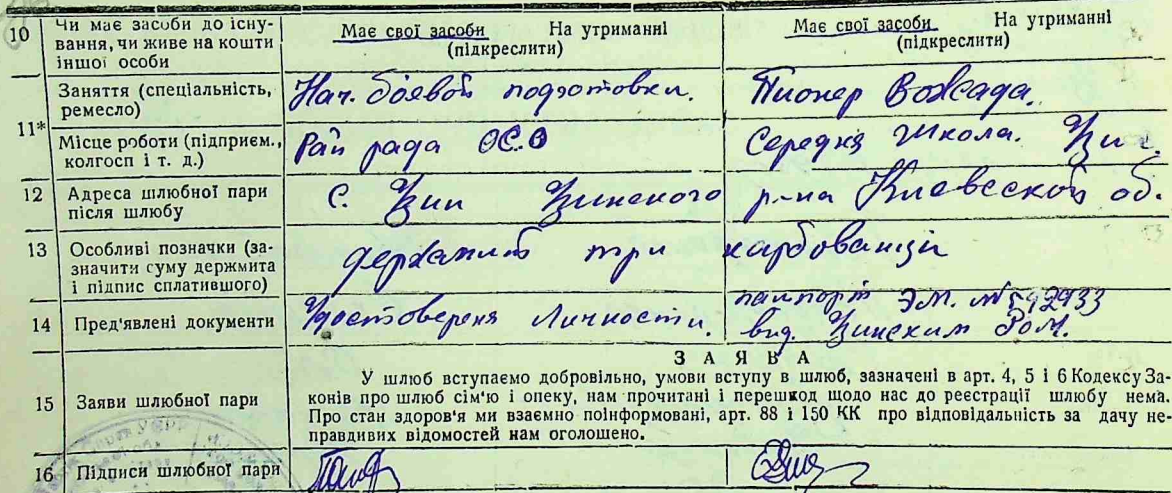 10 Чи має засоби до існу-
вання, чи живе на кошти
іншої особи
Має свої засоби На утриманні
(підкреслити)
Має свої засоби На утриманні
(підкреслити)
11*
Заняття (спеціальність,
ремесло)
Нач. боевой подготовки.
Пионер Вожада.
Місце роботи (підприєм.,
колгосп і т. д.)
Рай рада ОСО
Середня школа.
12 Адреса шлюбної пари
після шлюбу
С. р-на об.
13 Особливі позначки (за-
значити суму держмита
і підпис сплатившого)
держмит три
14 Пред'явлені документи
Личности.
паспорт ЭМ. № 542933
вид. РОМ.
ЗАЯВА
15 Заяви шлюбної пари
У шлюб вступаємо добровільно, умови вступу в шлюб, зазначені в арт. 4, 5 і 6 Кодексу За-
конів про шлюб сім'ю і опеку, нам прочитані і перешкод щодо нас до реєстрації шлюбу нема.
Про стан здоров'я ми взаємно поінформовані, арт. 88 і 150 КК про відповідальність за дачу не-
правдивих відомостей нам оголошено.
16 Підписи шлюбної пари